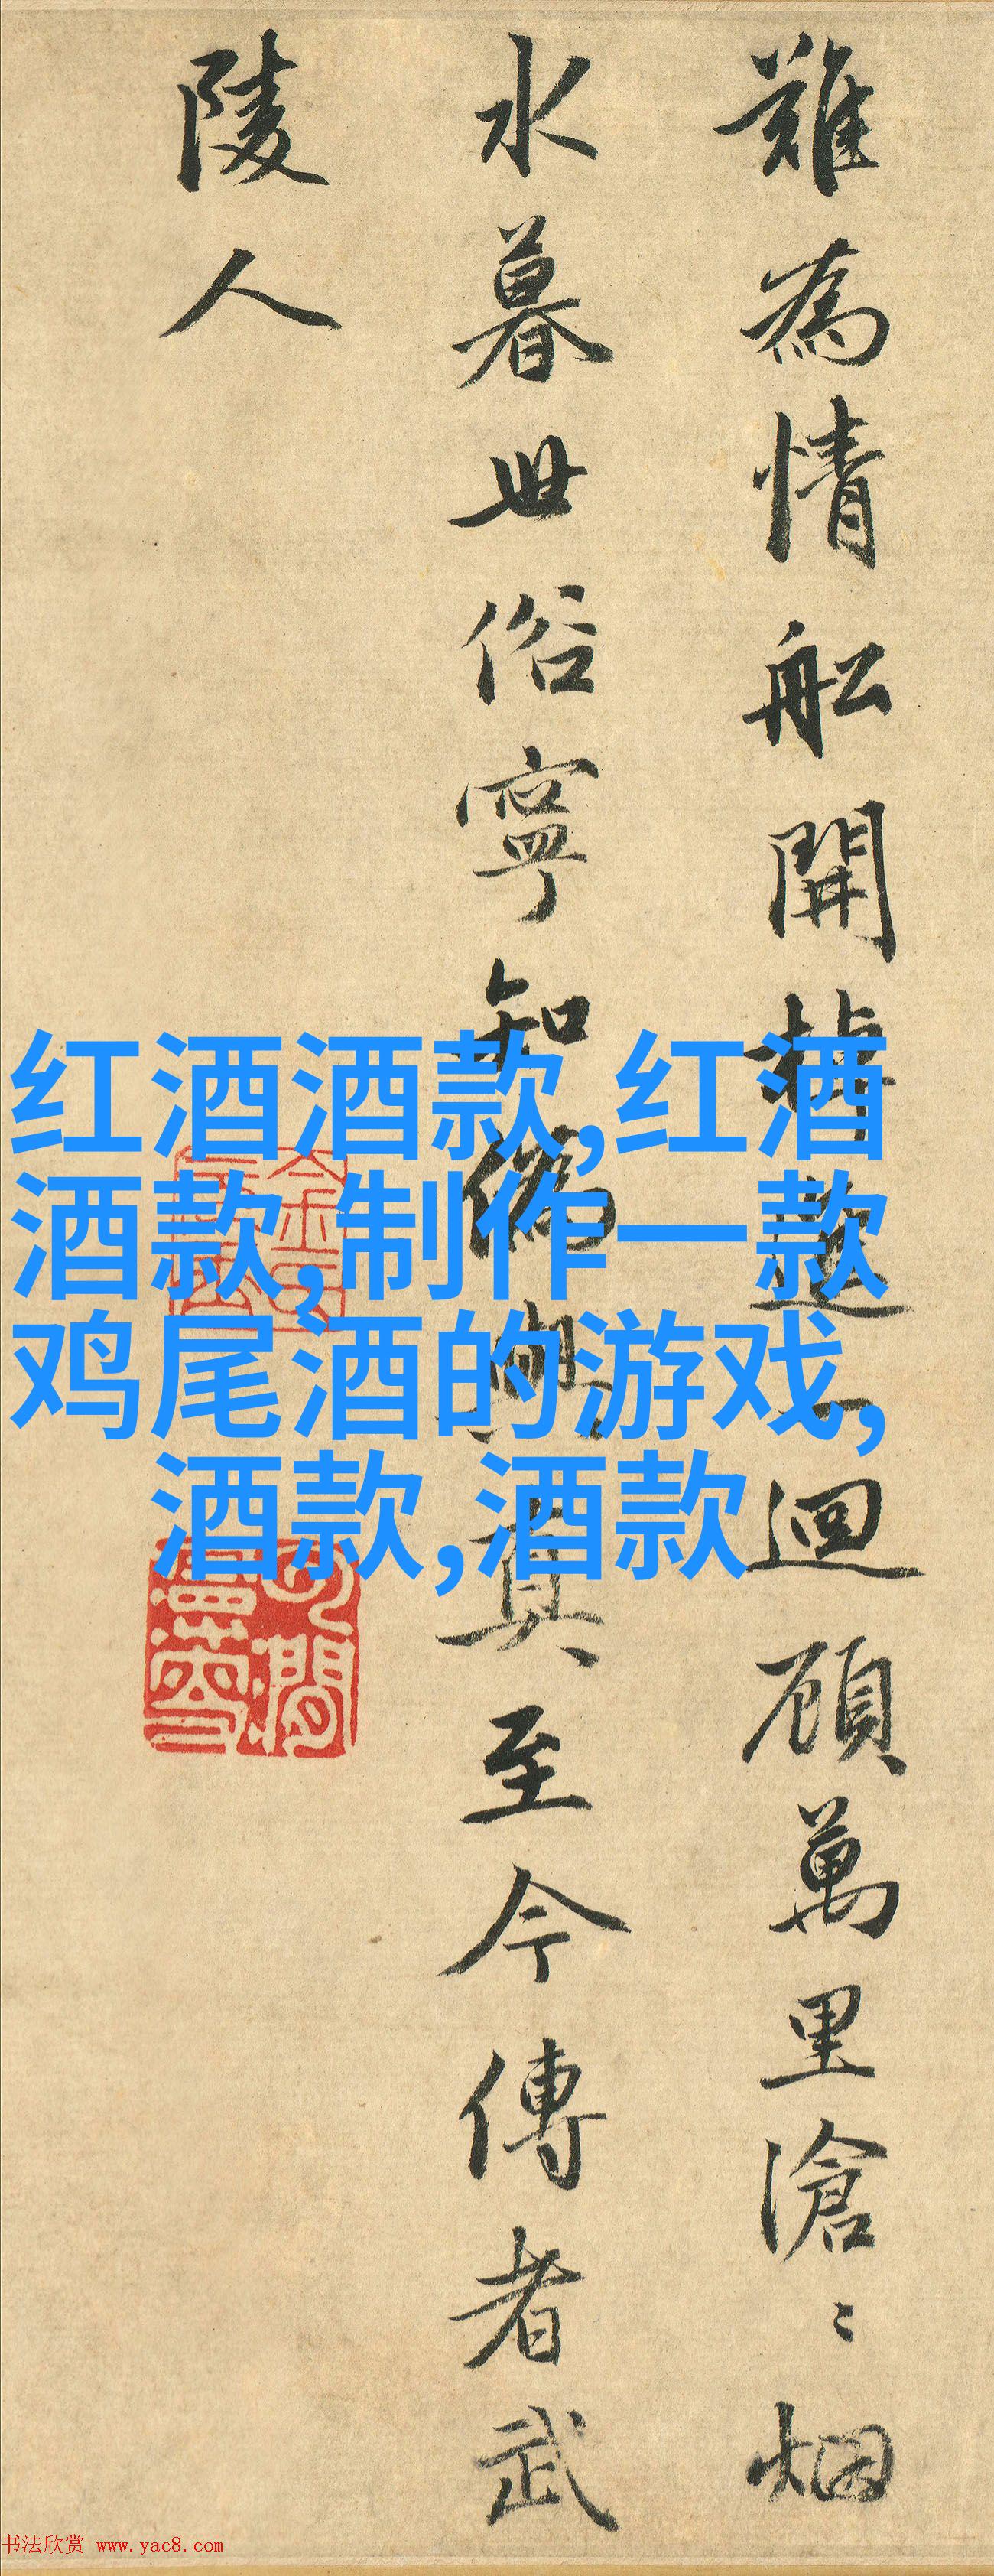 難為情舩開棹進一迴顧萬里滄〻烟
水暮世俗寧知偽與真至今傳者武
陵人
红酒酒款,红酒
酒款,制作一款
鸡尾酒的游戏,
酒款,酒款
书法欣赏 www.yac8.com